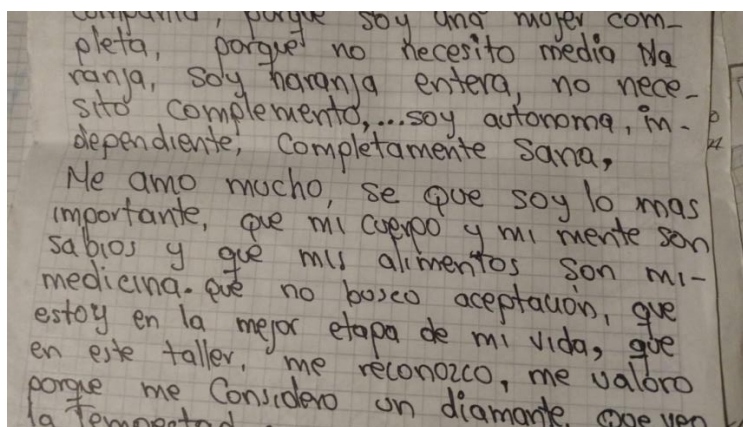 porque soy una mujer com-
pleta, porque no necesito media Na
ranja, soy naranja entera, no nece-
sito complemento,...soy autonoma, in-
dependiente, completamente sana,
Me amo mucho, se que soy lo mas
importante, que mi cuerpo y mi mente son
sabios y que mis alimentos son mi-
medicina. que no busco aceptación, que
estoy en la mejor etapa de mi vida, que
en este taller, me reconozco, me valoro
porque me Considero un diamante, que ven
la Tempestad